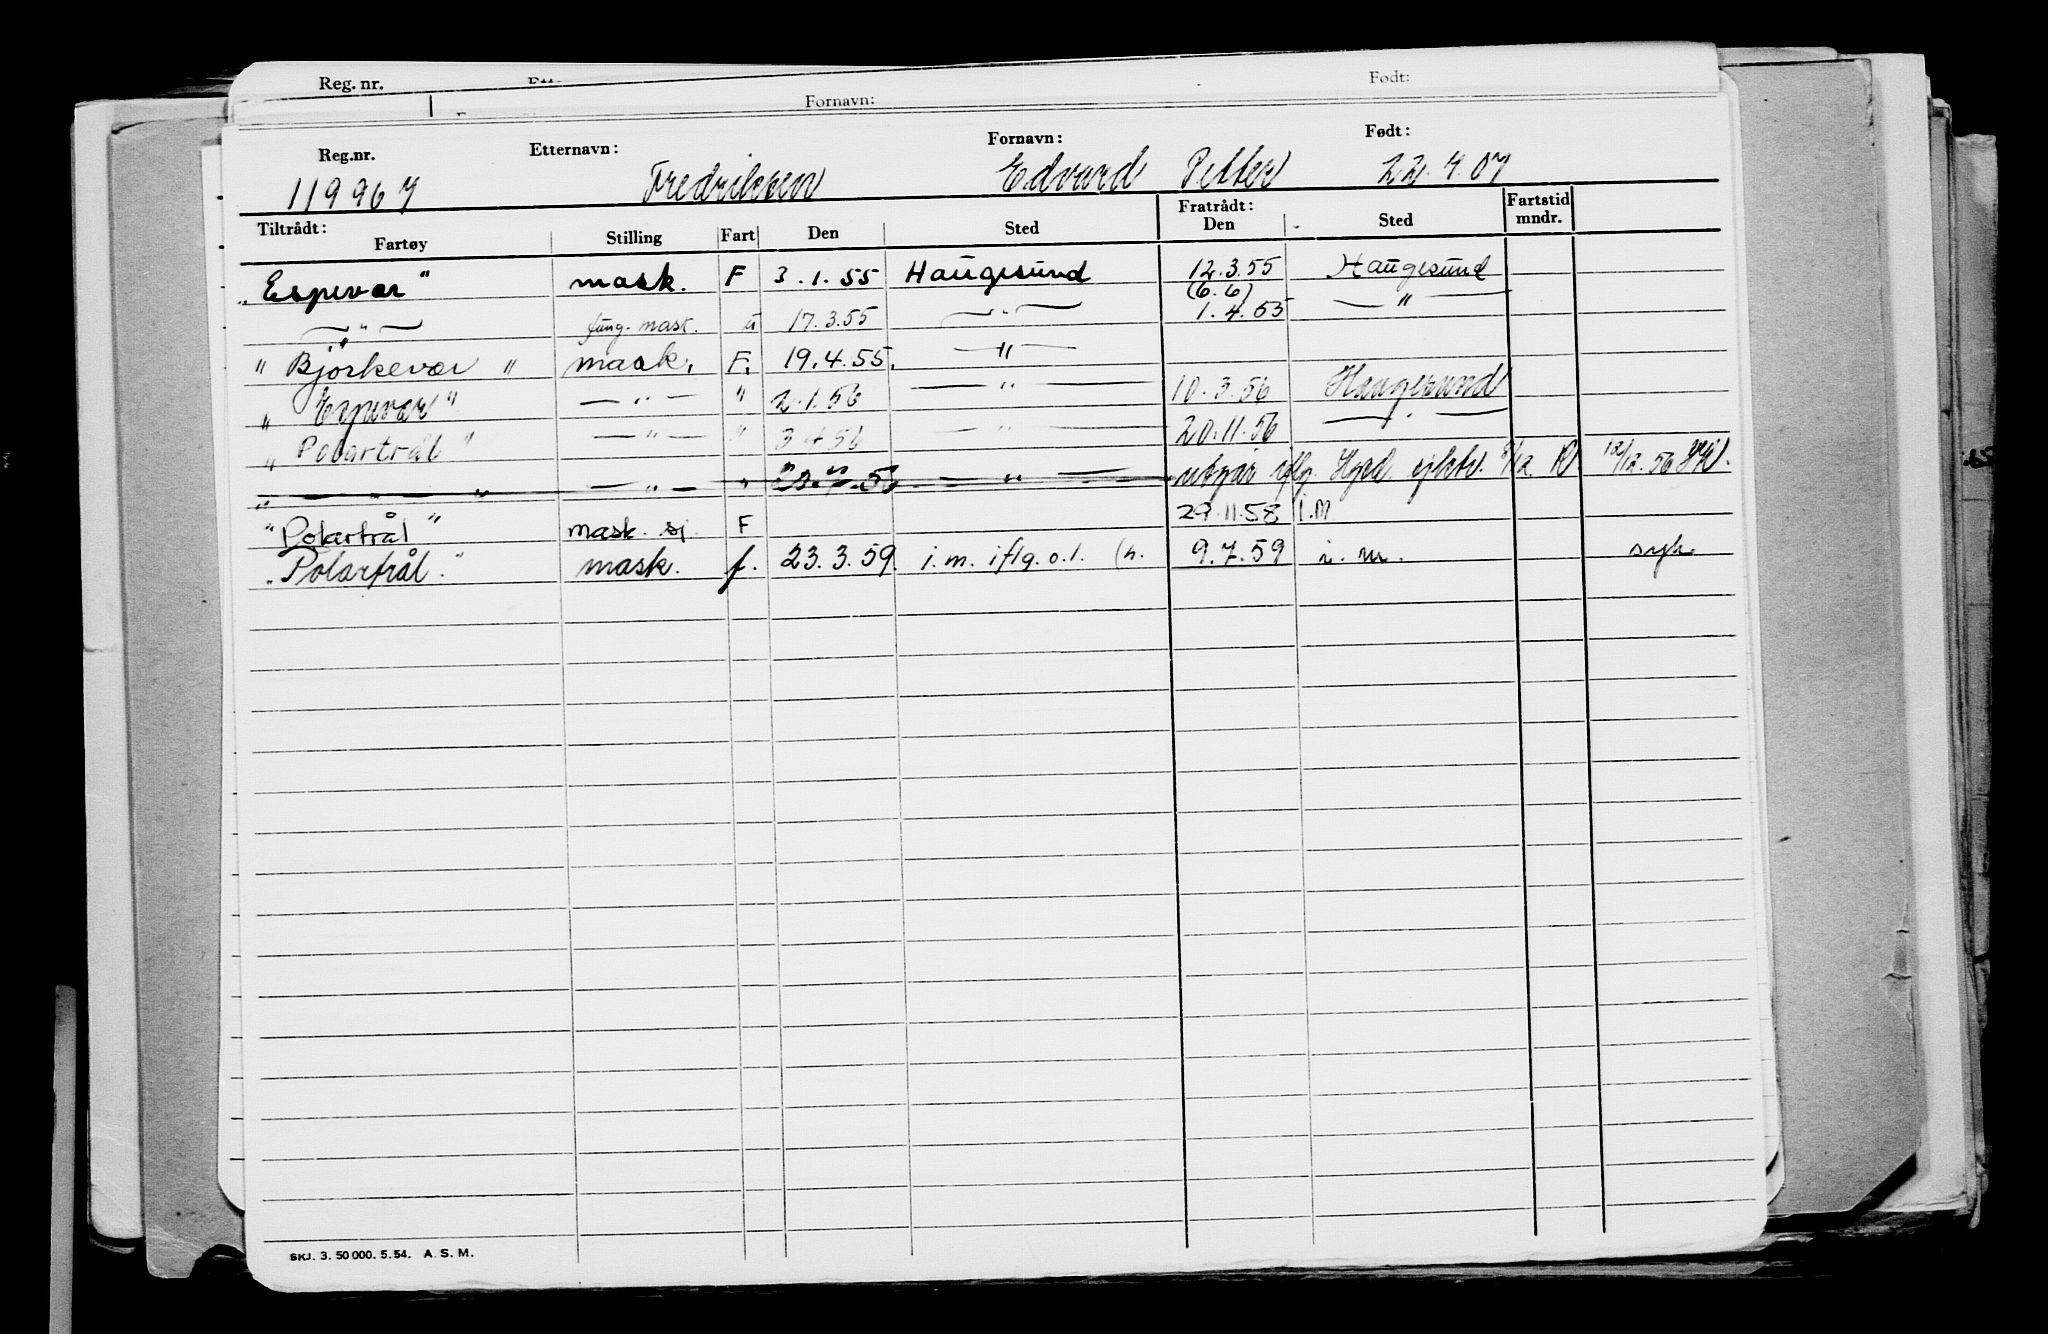 Reg. nr.
Fornavn:
Født:
Reg.nr. Etternavn: Fornavn: Født:
119967 Fredriksen Edvard Petter 22.7.07
Tiltrådt: Fratrådt: Fartstid
Fartøy Stilling Fart Den Sted Den Sted mndr.
"Espevær" mask. F 3.1.55 Haugesund 12.3.55 Haugesund
(6.6)
— " — fung. mask. u 17.3.55 — " — 1.4.55 — " —
" Bjørkevær " mask. F. 19.4.55. — " —
" Espevær " — " — " 2.1.56 — " — 10.3.56 Haugesund
" Polartrål " — " — " 3.4.56 — " — 20.11.56 — " —
" — " — " — " — " — " — utgår iflg. Hgsd. 12/12.56
"Polartrål" mask. sj. F 29.11.58 i.m
"Polartrål." mask. f. 23.3.59. i.m. iflg. o.l. (h. 9.7.59 i.m. syk
SKJ. 3. 50 000. 5. 54. A. S. M.